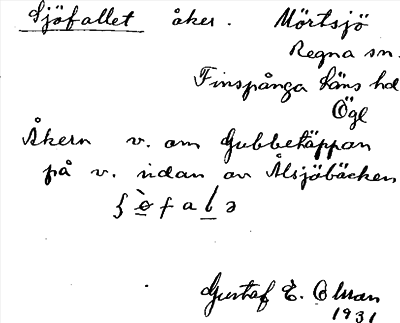 Sjöfallet åker. Mörtsjö
Regna sn.
Finspånga läns hd
Ögl
Åkern v. om Gubbetäppan
på v. sidan av Ålsjöbäcken
Gustaf E. Olsson
1931